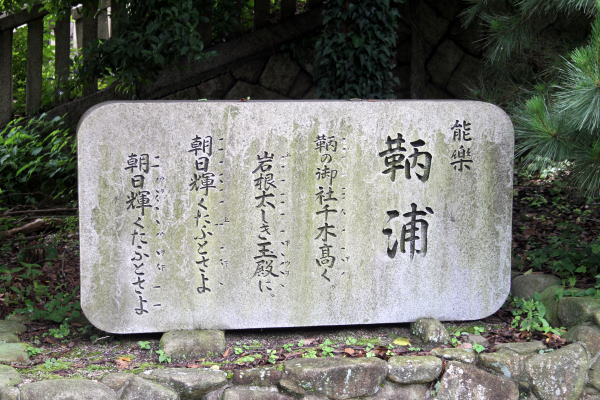 能樂
鞆浦
鞆の御社千木髙く
岩根太しき玉殿に、
朝日輝くたふとさよ
朝日輝くたふとさよ